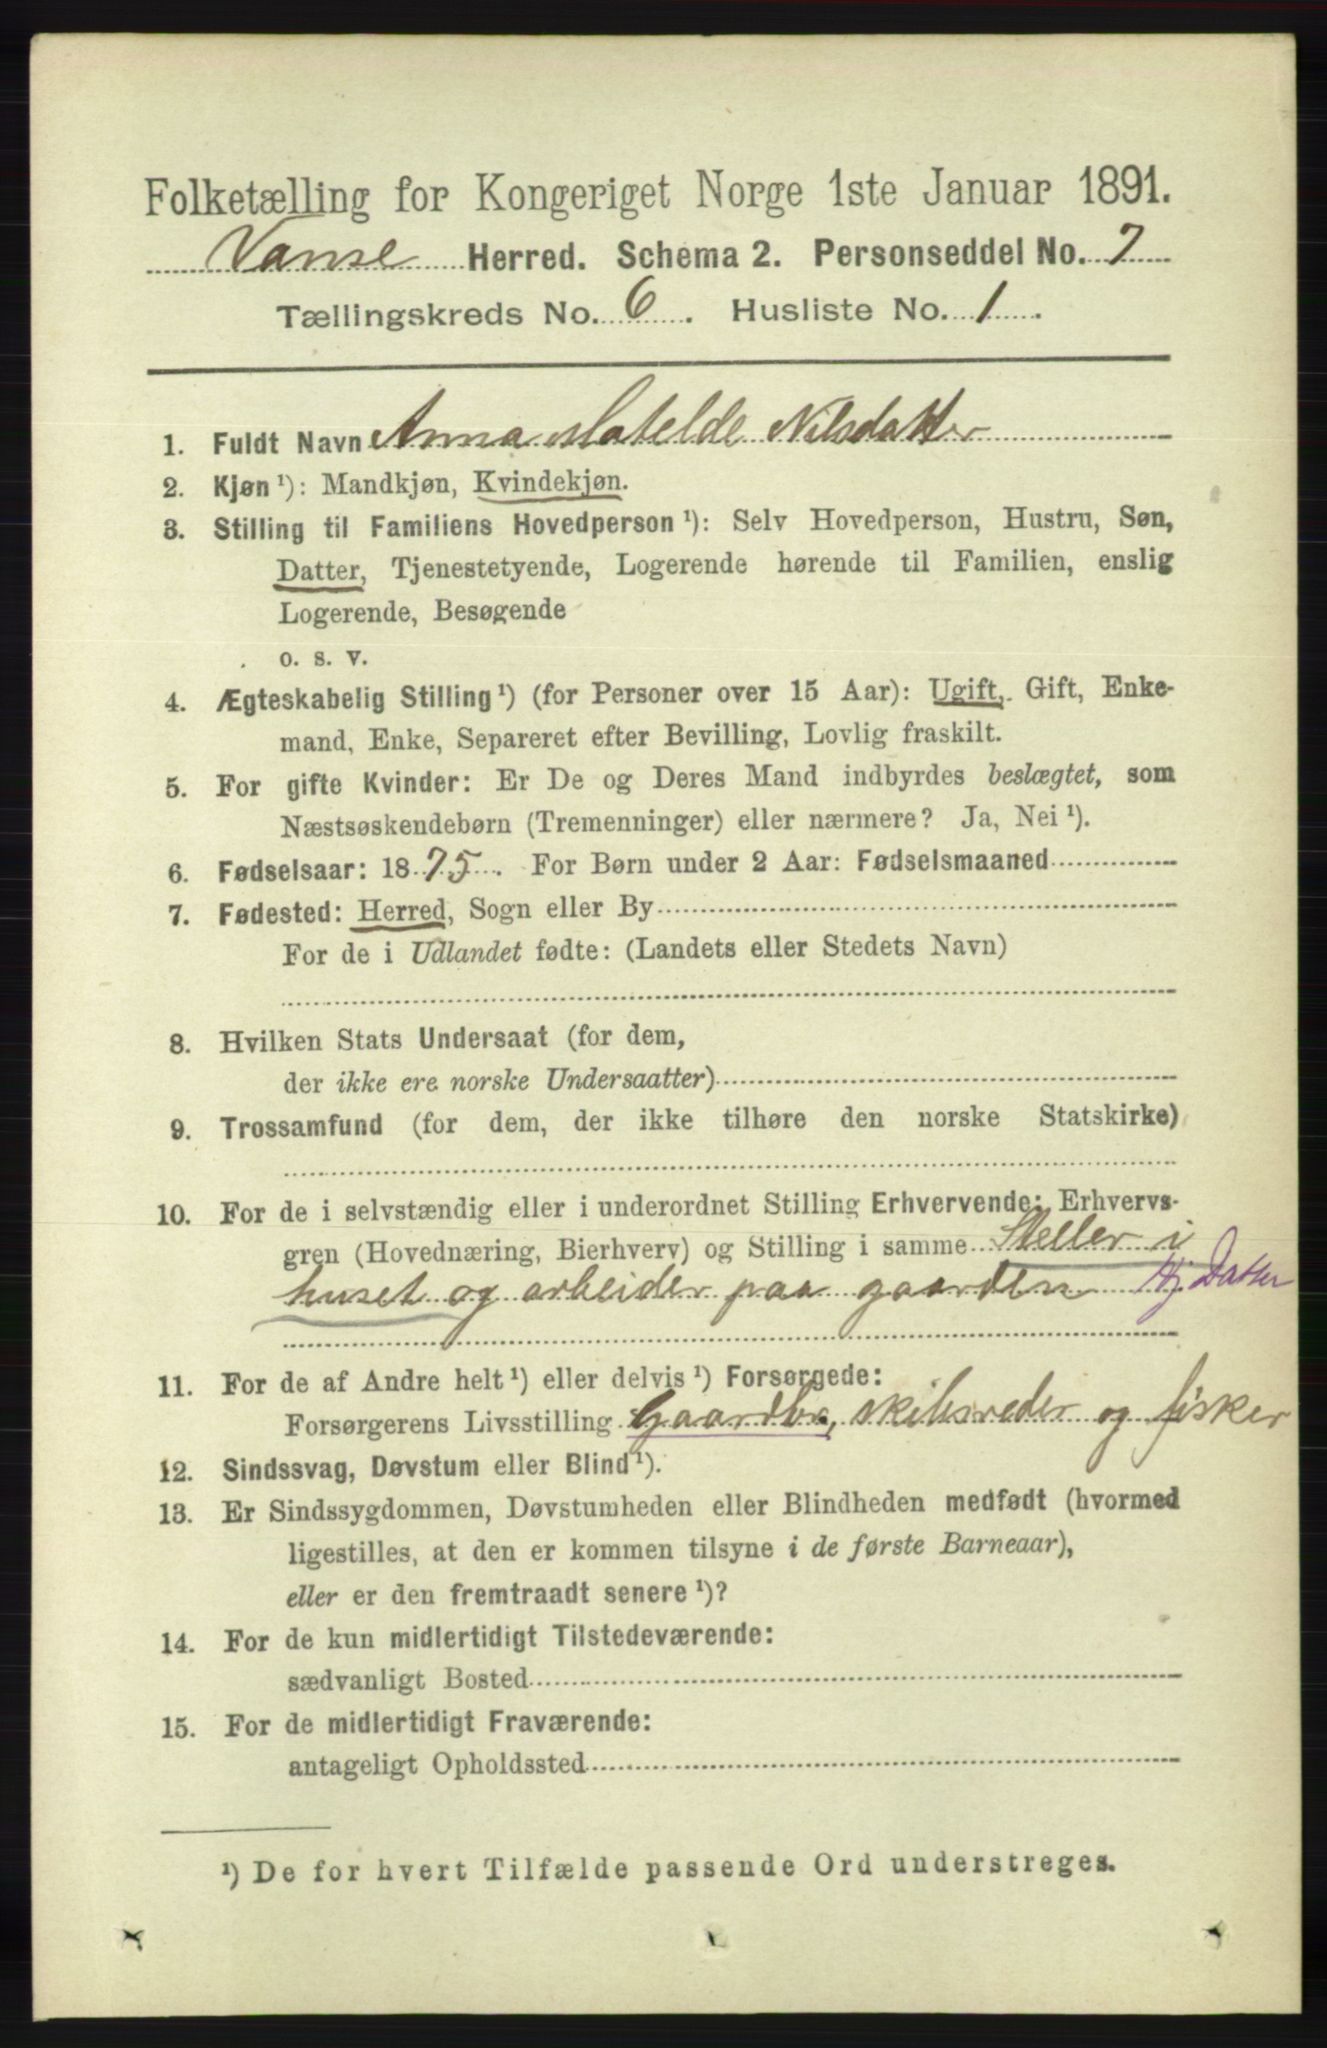 Folketælling for Kongeriget Norge 1ste Januar 1891.
Vanse Herred. Schema 2. Personseddel No. 7
Tællingskreds No. 6. Husliste No. 1.
1. Fuldt Navn Anna Matelde Nilsdatter
2. Kjøn ¹): Mandkjøn, Kvindekjøn.
3. Stilling til Familiens Hovedperson ¹): Selv Hovedperson, Hustru, Søn,
Datter, Tjenestetyende, Logerende hørende til Familien, enslig
Logerende, Besøgende
o. s. v.
4. Ægteskabelig Stilling ¹) (for Personer over 15 Aar): Ugift, Gift, Enke-
mand, Enke, Separeret efter Bevilling, Lovlig fraskilt.
5. For gifte Kvinder: Er De og Deres Mand indbyrdes beslægtet, som
Næstsøskendebørn (Tremenninger) eller nærmere? Ja, Nei ¹).
6. Fødselsaar: 1875. For Børn under 2 Aar: Fødselsmaaned
7. Fødested: Herred, Sogn eller By
For de i Udlandet fødte: (Landets eller Stedets Navn)
8. Hvilken Stats Undersaat (for dem,
der ikke ere norske Undersaatter)
9. Trossamfund (for dem, der ikke tilhøre den norske Statskirke)
10. For de i selvstændig eller i underordnet Stilling Erhvervende: Erhvervs-
gren (Hovednæring, Bierhverv) og Stilling i samme Steller i
huset og arbeider paa gaarden Hj. Datter
11. For de af Andre helt ¹) eller delvis ¹) Forsørgede:
Forsørgerens Livsstilling Gaardbr, skibsreder og fisker
12. Sindssvag, Døvstum eller Blind ¹).
13. Er Sindssygdommen, Døvstumheden eller Blindheden medfødt (hvormed
ligestilles, at den er kommen tilsyne i de første Barneaar),
eller er den fremtraadt senere ¹)?
14. For de kun midlertidigt Tilstedeværende:
sædvanligt Bosted
15. For de midlertidigt Fraværende:
antageligt Opholdssted
¹) De for hvert Tilfælde passende Ord understreges.